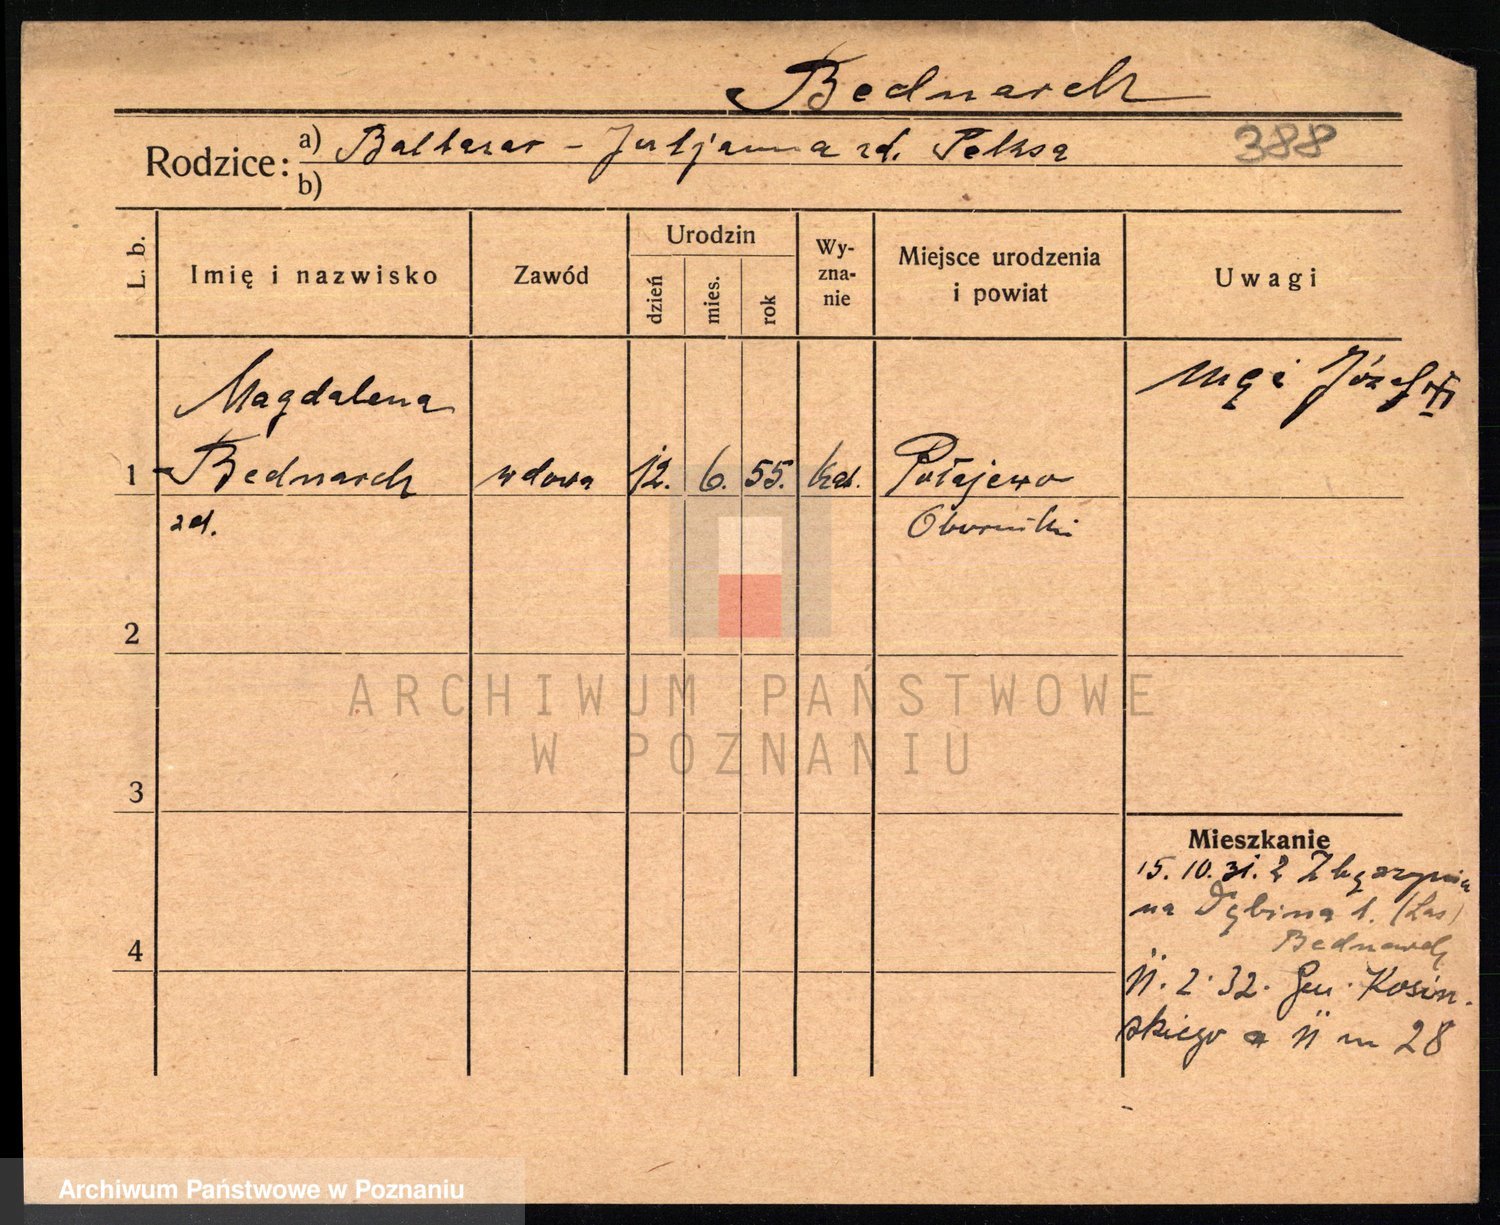 Bednarek
Rodzice: a) Baltazar – Juljanna zd. Peksa
388
b)
L. b.
Imię i nazwisko
Zawód
Urodzin
dzień
mies.
rok
Wy-
zna-
nie
Miejsce urodzenia
i powiat
Uwagi
Magdalena
mąż Józef
1 Bednarek wdowa 12. 6. 55. kat. Połajewo
zd. Oborniki
2
ARCHIWUM PAŃSTWOWE
W POZNANIU
3
Mieszkanie
15. 10. 31. z Zbąszynia
na Dębina 1. (Las)
Bednarek
4
11. 2. 32. Gen. Kosiń-
skiego 28
Archiwum Państwowe w Poznaniu